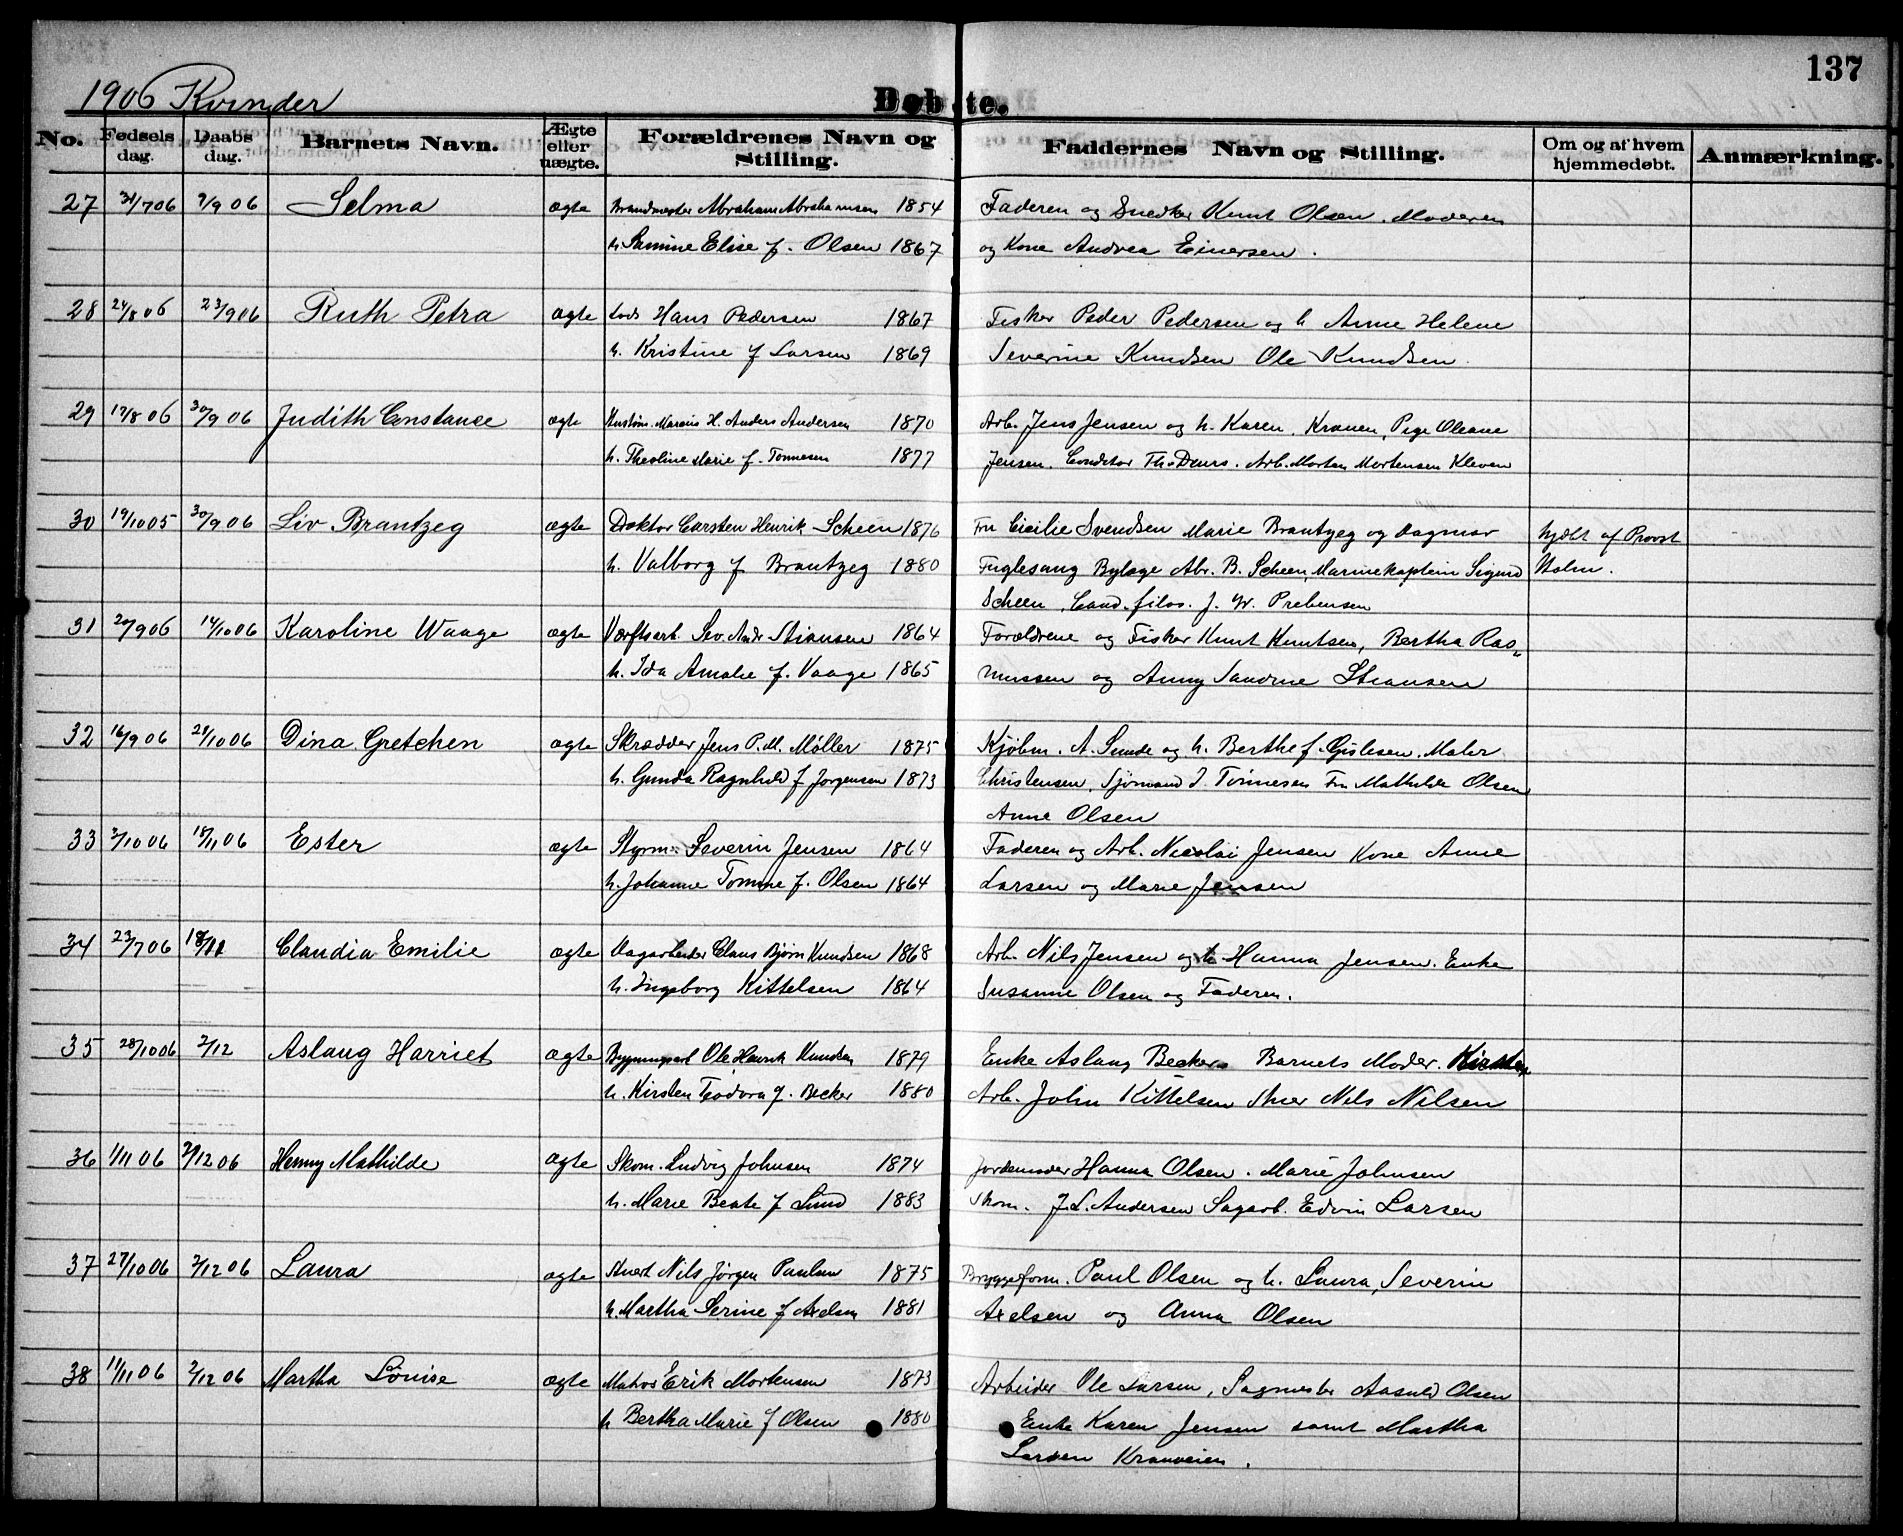 137
1906 Kvinder
Døbte.
No. Fødselsdag. Daabsdag. Barnets Navn. Ægte eller uægte. Forældrenes Navn og Stilling. Faddernes Navn og Stilling. Om og af hvem hjemmedøbt. Anmærkning.
27 31/7 06 9/9 06 Selma ægte Brandmester Abraham Abrahamsen 1854 Faderen og Snedker Knut Olsen. Moderen
h. Samine Elise f. Olsen 1867 og Kone Andrea Einersen.
28 24/8 06 23/9 06 Ruth Petra ægte Lods Hans Pedersen 1867 Fisker Peder Pedersen og h. Anne Helene
h. Kristine f Larsen 1869 Severine Knudsen Ole Knudsen.
29 17/8 06 30/9 06 Judith Constance ægte Marius H. Anders Andersen 1870 Arb. Jens Jensen og h. Karen, Kranen, Pige Oleane
h. Theoline Marie f. Tønnesen 1877 Jensen. Conditor Th. Arb. Morten Mortensen Kleven
30 19/10 05 30/9 06 Liv Brantzeg ægte Doktor Carsten Henrik Scheen 1876 Fru Cicilie Svendsen Marie Brantzeg og Dagmar hjdbt af Provst
h. Valborg f Brantzeg 1880 Fuglesang Bylæge Abr. B. Scheen, Marinekaptein Sigurd Holm.
Scheen, Cand. filos. J. W. Prebensen
31 14/10 06 Karoline Waage ægte Værftsarb. Sev. Andr Stiansen 1864 Forældrene og Fisker Knut Knutsen, Bertha Ras-
h. Ida Amalie f. Vaage 1865 mussen og Anny Sandrine Stiansen
32 16/9 06 21/10 06 Dina Gretchen ægte Skrædder Jens P. M. Møller 1875 Kjøbm. A. Sunde og h. Berthe f. Gislesen. Maler
h. Gunda Ragnhild f Jørgensen 1873 Christensen, Sjømand J. Tønnesen Fru Mathilde Olsen
Anne Olsen
33 18/11 06 Ester ægte Styrm. Severin Jensen 1864 Faderen og Arb. Nicolai Jensen Kone Anne
h. Johanne Tomine f. Olsen 1864 Larsen og Marie Jensen
34 23/7 06 18/11 Claudia Emilie ægte Claus Bjørn Knudsen 1868 Arb. Nils Jensen og h. Hanna Jensen. Enke
h. Ingeborg Kittelsen 1864 Susanne Olsen og Faderen.
35 28/10 06 2/12 Aslaug Harriet ægte Bygningsarb Ole Henrik Knudsen 1879 Enke Aslaug Becker Barnets Moder. Kirsten
h. Kirsten Teodora f. Becker 1880 Arb. John Kittelsen Nils Nilsen
36 1/11 06 2/12 06 Henny Mathilde ægte Skom. Ludvig Johnsen 1874 Jordemoder Hanna Olsen. Marie Johnsen
h. Marie Beate f Lund 1883 Skom. J. L. Andersen Sagarb. Edvin Larsen
37 27/10 06 2/12 06 Laura ægte Nils Jørgen Paulsen 1875 Bryggeform. Paul Olsen og h. Laura, Severin
h. Martha Serine f Axelsen 1881 Axelsen og Anna Olsen
38 11/11 06 2/12 06 Martha Lovise ægte Matros Erik Mortensen 1873 Arbeider Ole Larsen, Sagmester Olsen
h Bertha Marie f Olsen 1880 Enke Karen Jensen samt Martha
Larsen Kranveien.